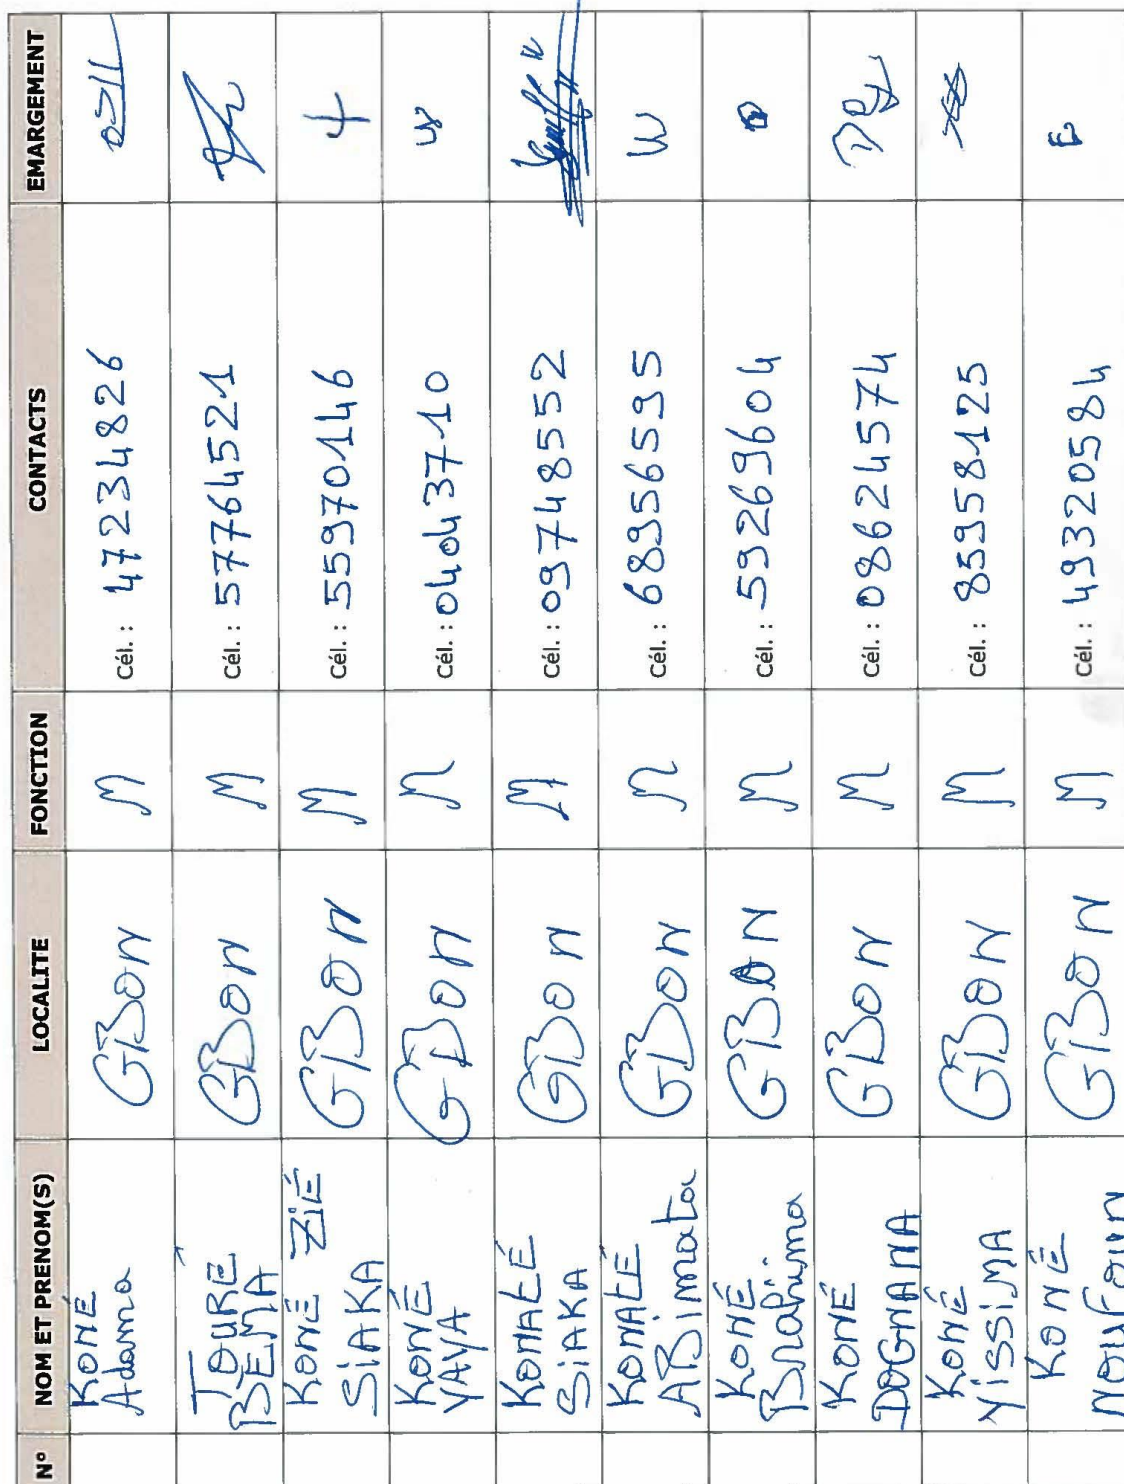 N° NOM ET PRENOM(S) LOCALITE FONCTION CONTACTS EMARGEMENT
KONÉ
Adama GBON M Cél. : 47234826
TOURÉ
BEMA GBON M Cél. : 57764521
KONÉ ZIÉ
SIAKA GBON M Cél. : 55970146
KONÉ
YAYA GBON M Cél. : 04043710
KONATÉ
SIAKA GBON M Cél. : 09748552
KONATÉ
ABimata GBON M Cél. : 68956595 W
KONÉ
Brahima GBON M Cél. : 59269604
KONÉ
DOGNANA GBON M Cél. : 08624574
KONÉ
YISSIMA GBON M Cél. : 85958125
KONÉ
GBON M Cél. : 49320584 E